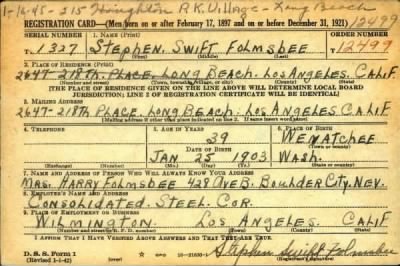 1-16-45-215 Houghton P.K. Village - Long Beach
REGISTRATION CARD—(Men born on or after February 17, 1897 and on or before December 31, 1921) 12499
SERIAL NUMBER 1. NAME (Print) ORDER NUMBER
T 1327 Stephen. Swift Folmsbee T 12499
(First) (Middle) (Last)
2. PLACE OF RESIDENCE (Print)
2647-218th PLACE, LONG BEACH. LOS ANGELES. CALIF.
(Number and street) (Town, township, village, or city) (County) (State)
[THE PLACE OF RESIDENCE GIVEN ON THE LINE ABOVE WILL DETERMINE LOCAL BOARD
JURISDICTION; LINE 2 OF REGISTRATION CERTIFICATE WILL BE IDENTICAL]
3. MAILING ADDRESS
2647-218th PLACE. LONG BEACH. LOS ANGELES CALIF
[Mailing address if other than place indicated on line 2. If same insert word same]
4. TELEPHONE 5. AGE IN YEARS 6. PLACE OF BIRTH
39 WENATCHEE
DATE OF BIRTH (Town or county)
JAN 25 1903 WASH.
(Exchange) (Number) (Mo.) (Day) (Yr.) (State or country)
7. NAME AND ADDRESS OF PERSON WHO WILL ALWAYS KNOW YOUR ADDRESS
MRS. HARRY FOLMSBEE 428 AVE B. BOULDER CITY. NEV.
8. EMPLOYER'S NAME AND ADDRESS
CONSOLIDATED. STEEL. COR.
9. PLACE OF EMPLOYMENT OR BUSINESS
WILMINGTON. LOS ANGELES. CALIF
(Number and street or R. F. D. number) (Town) (County) (State)
I AFFIRM THAT I HAVE VERIFIED ABOVE ANSWERS AND THAT THEY ARE TRUE.
D. S. S. Form 1
(Revised 1-1-42) (over) 16—21630-1 Stephen Swift Folmsbee
(Registrant's signature)